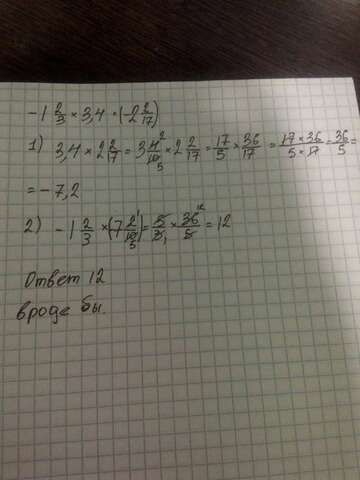 -1 2/3 × 3,4 × (-2 2/17)
1) 3,4 × 2 2/17 = 3 4/10 × 2 2/17 = 17/5 × 36/17 = 17 × 36/5 × 17 = 36/5 =
= -7,2
2) -1 2/3 × (7 2/10) = 5/3 × 36/5 = 12
Ответ 12
вроде бы.